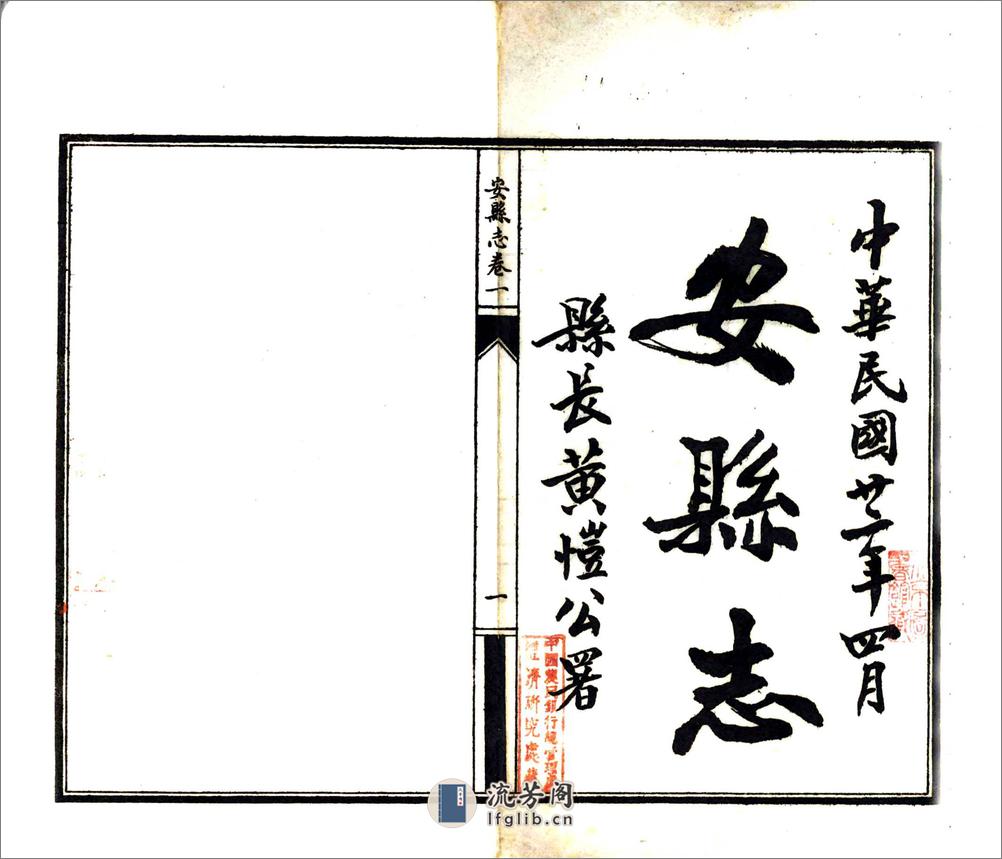 中華民國廿二年四月
安縣志
縣長黃愷公署
中國農民銀行總管理處
經濟研究處藏
安縣志卷一
一
流芳阁
lfglib.cn